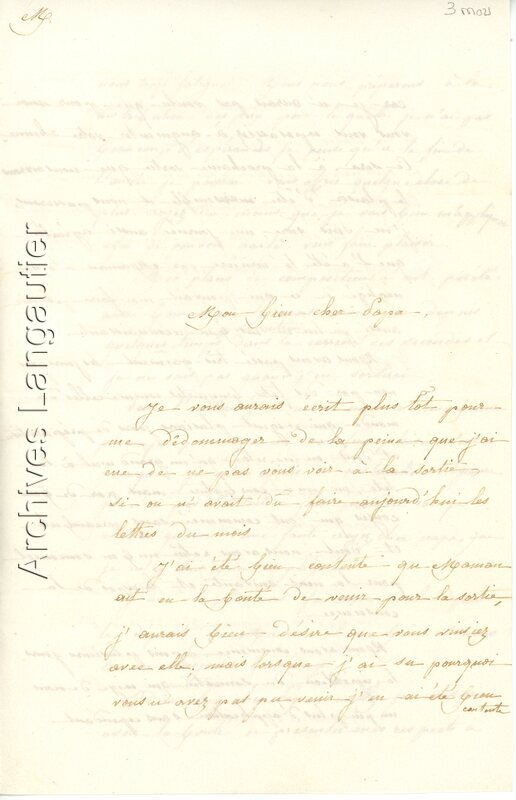 M.
3 mou
Archives Langautier
Mon bien cher Papa.
Je vous aurais écrit plus tôt pour
me dédommager de la peine que j'ai
eue de ne pas vous voir à la sortie,
si on n'avait dû faire aujourd'hui les
lettres du mois
J'ai été bien contente que Maman
ait eu la bonté de venir pour la sortie,
j'aurais bien désiré que vous vinssiez
avec elle, mais lorsque j'ai su pourquoi
vous n'avez pas pu venir j'en ai été bien
contente